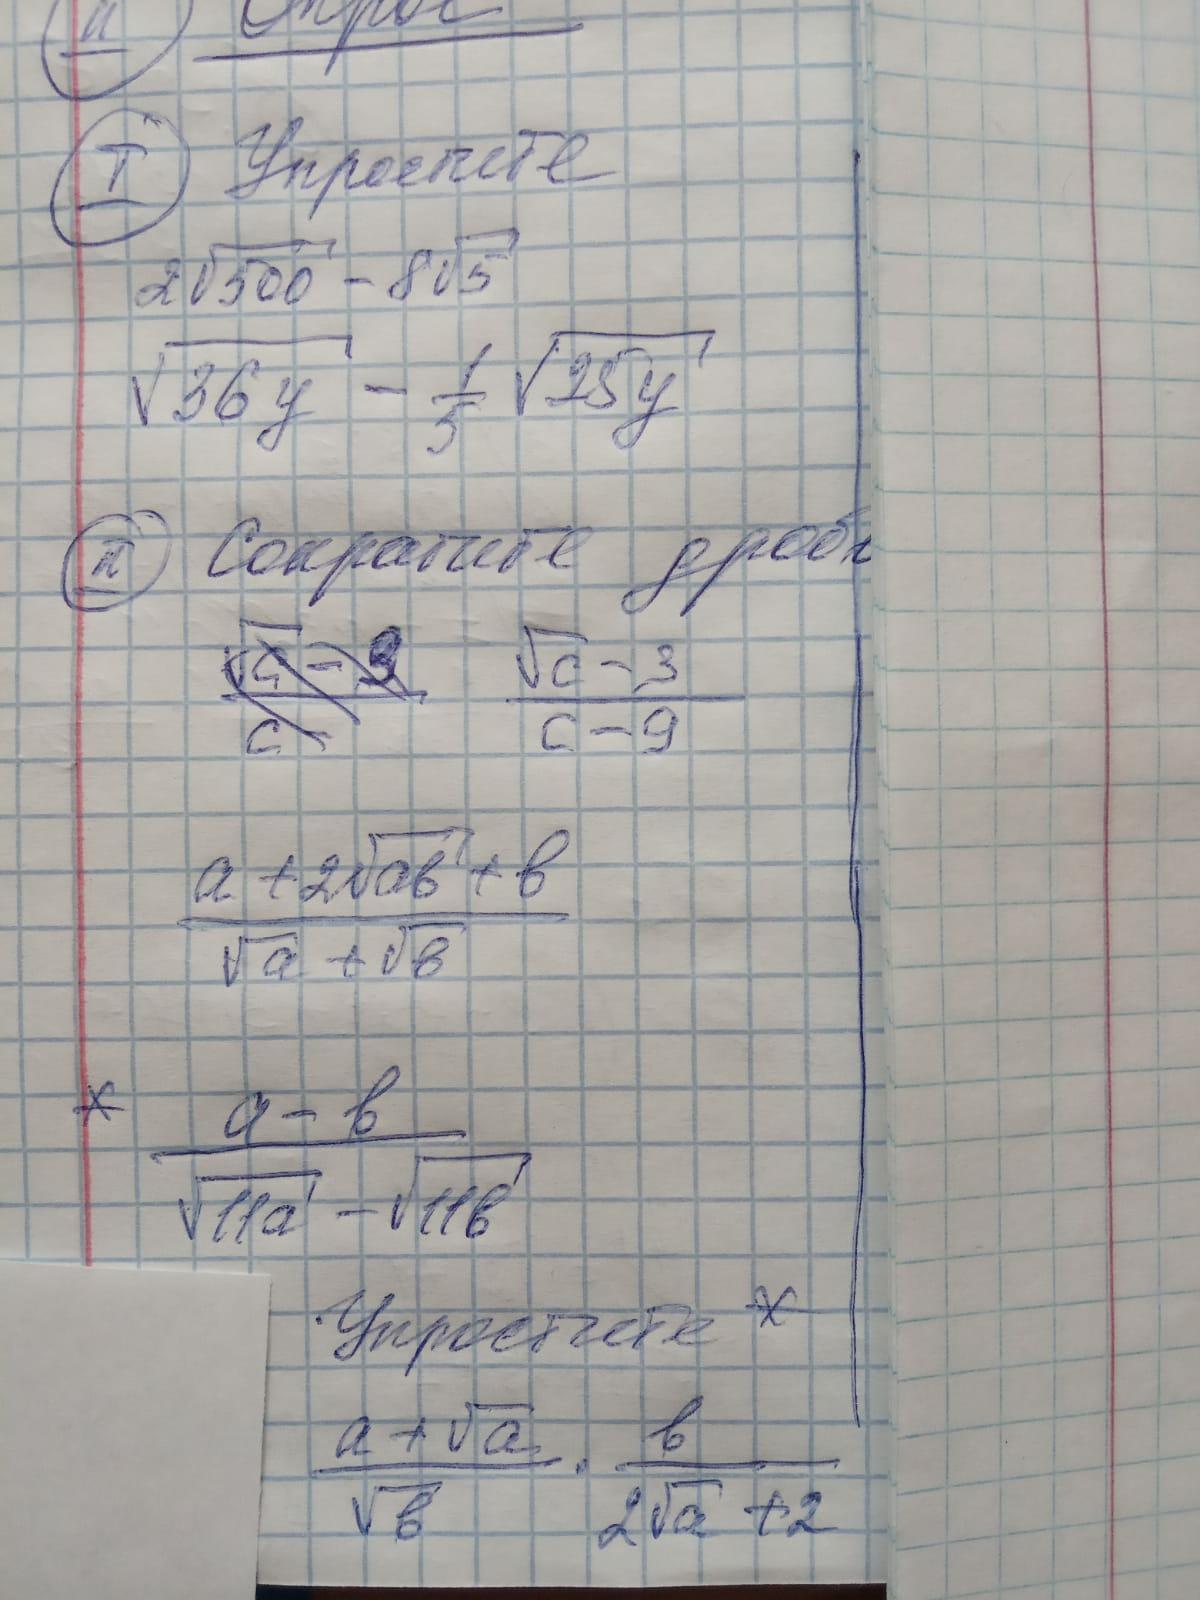 II Опрос
I Упростите
2√500 - 8√5
√36y - 1/5 √25y
II Сократите дробь
(√c - 3)/(c - 9)
(a + 2√ab + b)/(√a + √b)
* (a - b)/(√11a - √11b)
Упростите *
(a + √a)/√b · b/(2√a + 2)